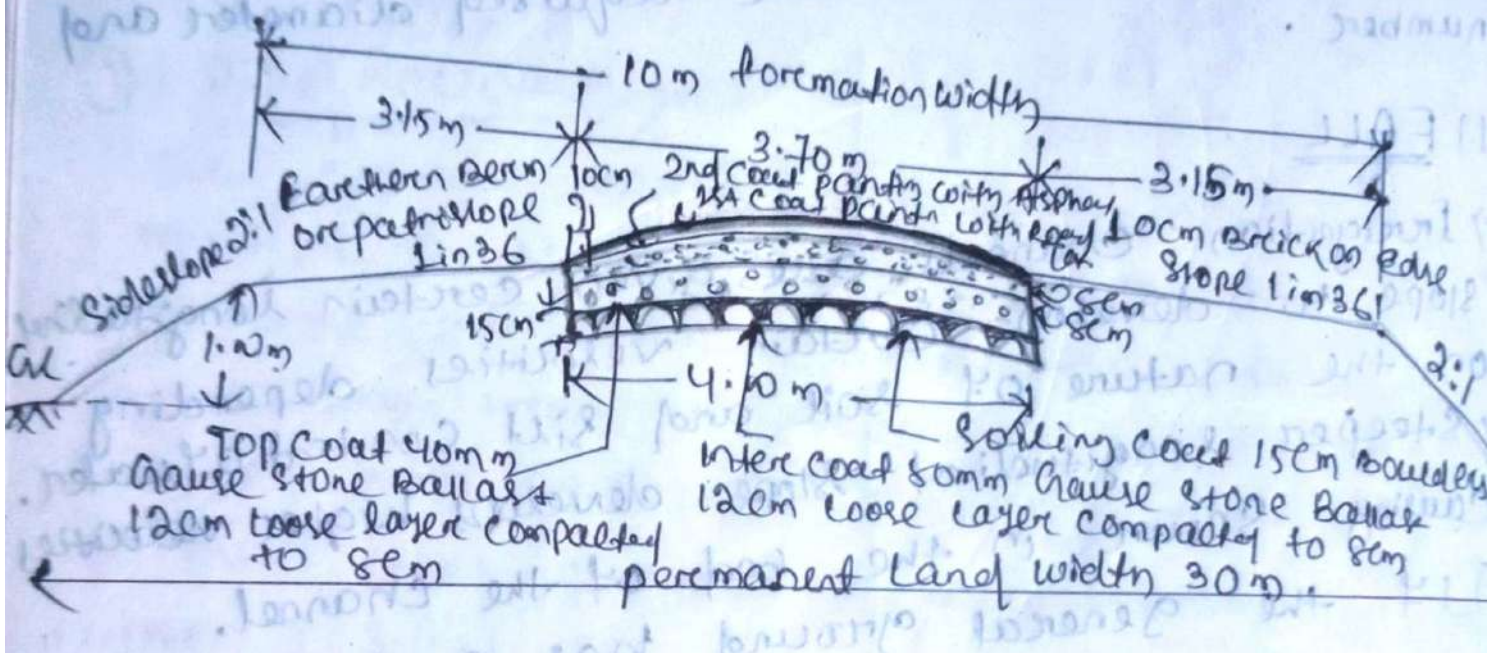 10m foremation width
3.15m
3.70m
3.15m
Earethern Berem
ore patri slope
1 in 36
10cm
2nd coat painting with Asphalt
1st coat paintn with Road
tar
10cm Breick on Edge
Slope 1 in 36
Side slope 2:1
GL
1.00m
15cm
8cm
8cm
2:1
4.10 m
TOP Coat 40mm
Gause stone Ballast
12cm loose layer compacted
to 8cm
Inter coat 50mm Gause stone Ballast
12cm loose layer compacted to 8cm
Soiling Coat 15cm Boulders
peremanent Land width 30m.